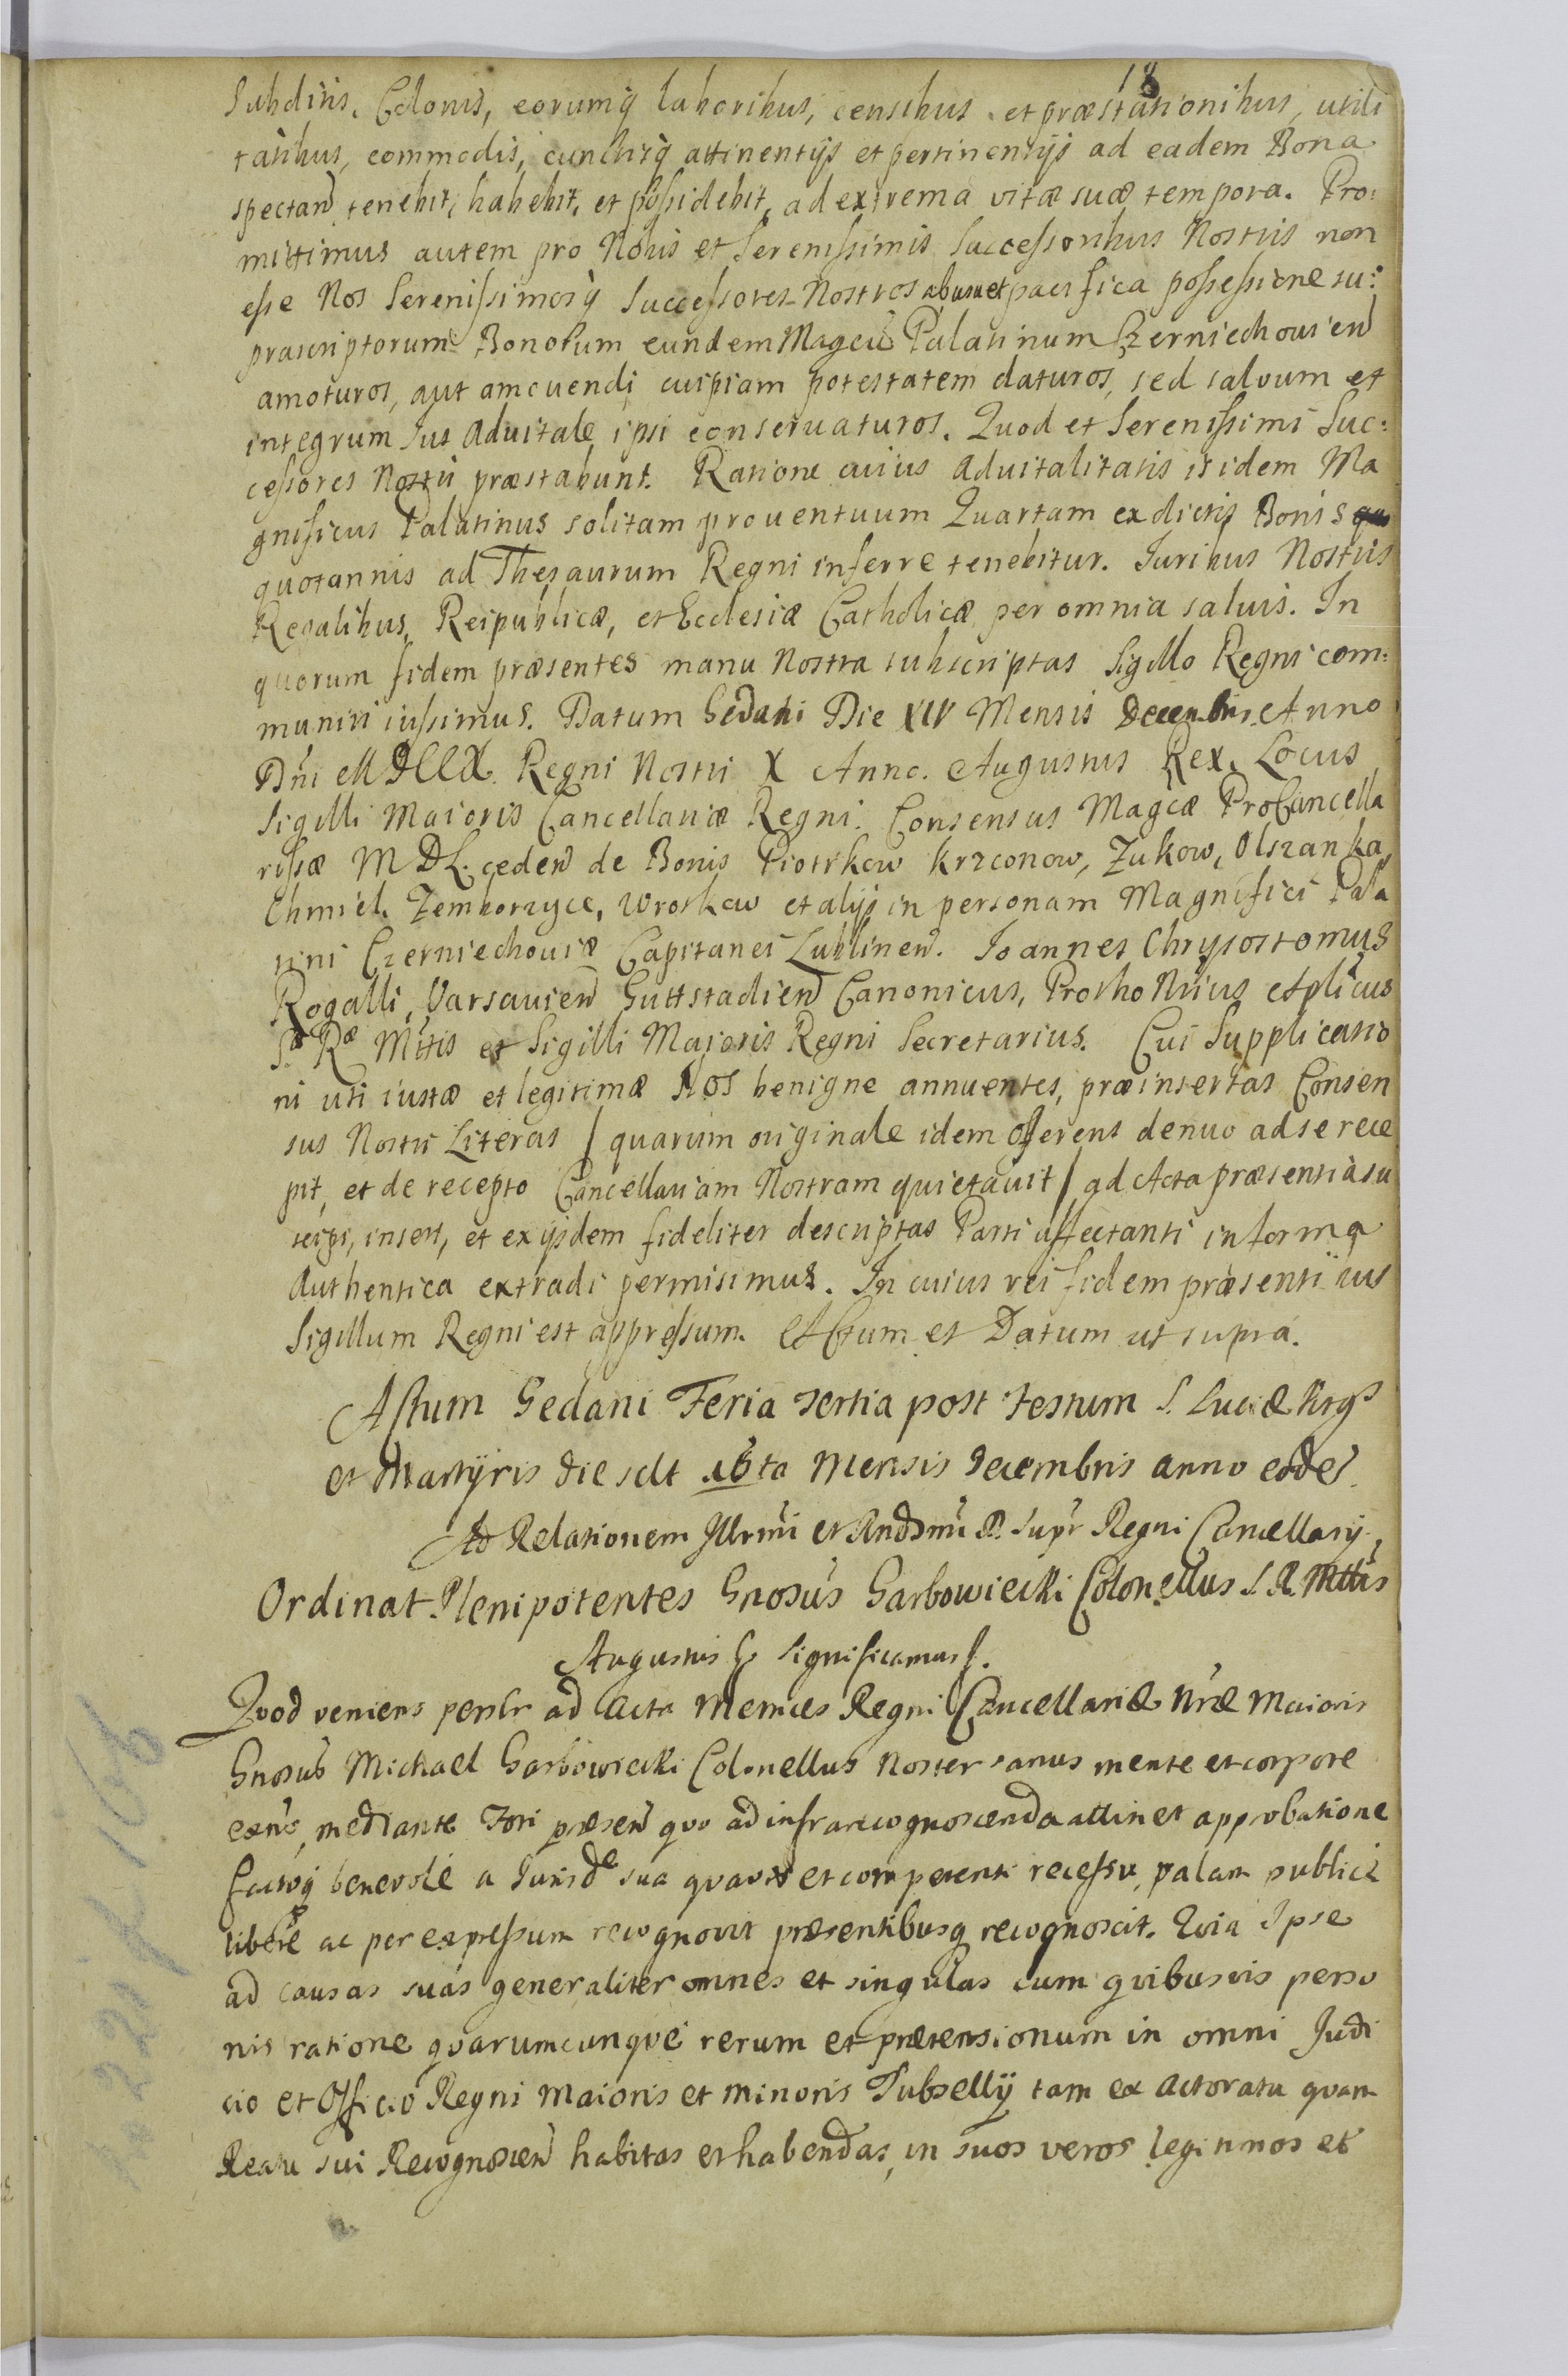 18
Subditis, Colonis, eorumq̃ laboribus, censibus et præstationibus, utili
tatibus, commodis, cunctisq̃ attinentijs et pertinentijs ad eadem Bona
spectan̄ tenebit, habebit, et possidebit, ad extrema vitæ suæ tempora. Pro:
mittimus autem pro Nobis et Serenissimis Successoribus Nostris non
esse Nos Serenissimosq̃ Successores Nostros ab usu et pacifica possessione su:
prascriptorum Bonorum eundem Magcũ Palatinum Czerniechovien̄
amoturos, aut amouendi cuipiam potestatem daturos, sed saluum et
integrum Jus Aduitale ipsi conseruaturos. Quod et Serenissimi Suc:
cessores Nostri præstabunt. Ratione cuius Aduitalitatis itidem Ma
gnificus Palatinus solitam prouentuum Quartam ex dictis Bonis
quotannis ad Thesaurum Regni inferre tenebitur. Juribus Nostris
Regalibus, Reipublicæ, et Ecclesiæ Catholicæ per omnia saluis. In
quorum fidem præsentes manu Nostra subscriptas Sigillo Regni com:
muniri iussimus. Datum Gedani Die XIV Mensis Decembris Anno
Dn̄i MDCCX. Regni Nostri X Anno. Augustus Rex. Locus
Sigilli Maioris Cancellariæ Regni. Consensus Magcæ ProCancella
rissæ MDL. ceden̄ de Bonis Piotrkow Krzconow, Zukow, Olszanka,
Chmiel, Zemborzyce, Wrotkow et alijs in personam Magnifici Pala
tini Czerniechouiæ Capitanei Lublinen̄. Joannes Chrysostomus
Rogalli, Varsauien̄ Guttstadien̄ Canonicus, Protho Nrius Aplicus
S. Ræ Mttis et Sigilli Maioris Regni Secretarius. Cui Supplicatio
ni uti iustæ et legitimæ Nos benigne annuentes, præinsertas Consen
sus Nostri Literas / quarum originale idem Offerens denuo ad se rece
pit, et de recepto Cancellariam Nostram quietauit / ad Acta præsentia su
scipi, inseri, et ex ijsdem fideliter descriptas Parti affectanti in forma
Authentica extradi permisimus. In cuius rei fidem præsentibus
Sigillum Regni est appressum. Actum et Datum ut supra.
Actum Gedani Feria tertia post Festum S. Luciæ Virgs
et Martyris die sclt 16ta Mensis Decembris anno eode.
Ad Relationem Illrmi et Rndsmi D. Supr Regni Cancellarij.
Ordinat Plenipotentes Gnosus Garbowiecki Colonellus S. R. Mttis
Augustus &c significamus &.
Quod veniens persltr ad Acta Metrices Regni Cancellariæ Nræ Maioris
Gnosus Michael Garbowiecki Colonellus Noster sanus mente et corpore
exns, mediante Fori præsen̄ quo ad infra recognoscenda attinet approbatione
factoq̃ benevole a Jurisde sua quavis et competenti recessu, palam publice
libere ac per expressum recognovit præsentibusq̃ recognoscit. Quia Ipse
ad causas suas generaliter omnes et singulas cum quibusvis perso
nis ratione quarumcunque rerum et prætensionum in omni Judi
cio et Officio Regni Maioris et Minoris Subsellij tam ex Actoratu quam
Reatu sui Recognoscen̄ habitas et habendas, in suos veros legitimos et